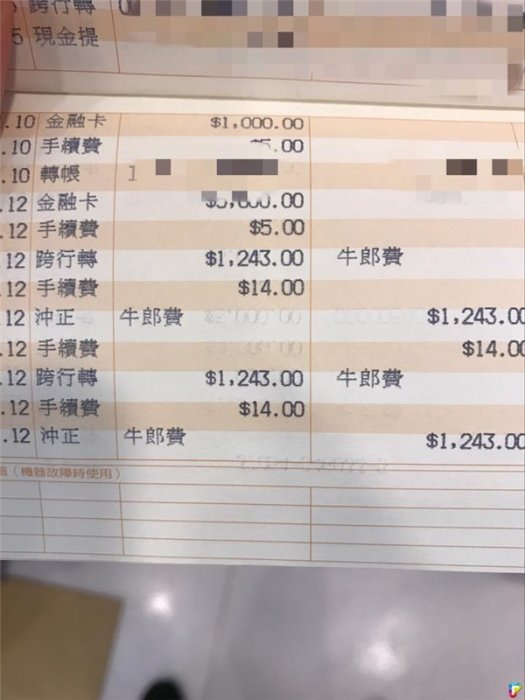 跨行轉
5 現金提
.10 金融卡 $1,000.00
.10 手續費 .00
.10 轉帳 1
.12 金融卡 .00
.12 手續費 $5.00
12 跨行轉 $1,243.00 牛郎費
12 手續費 $14.00
12 沖正 牛郎費 $1,243.00
.12 手續費 $14.00
.12 跨行轉 $1,243.00 牛郎費
.12 手續費 $14.00
.12 沖正 牛郎費 $1,243.00
(機器故障時使用)